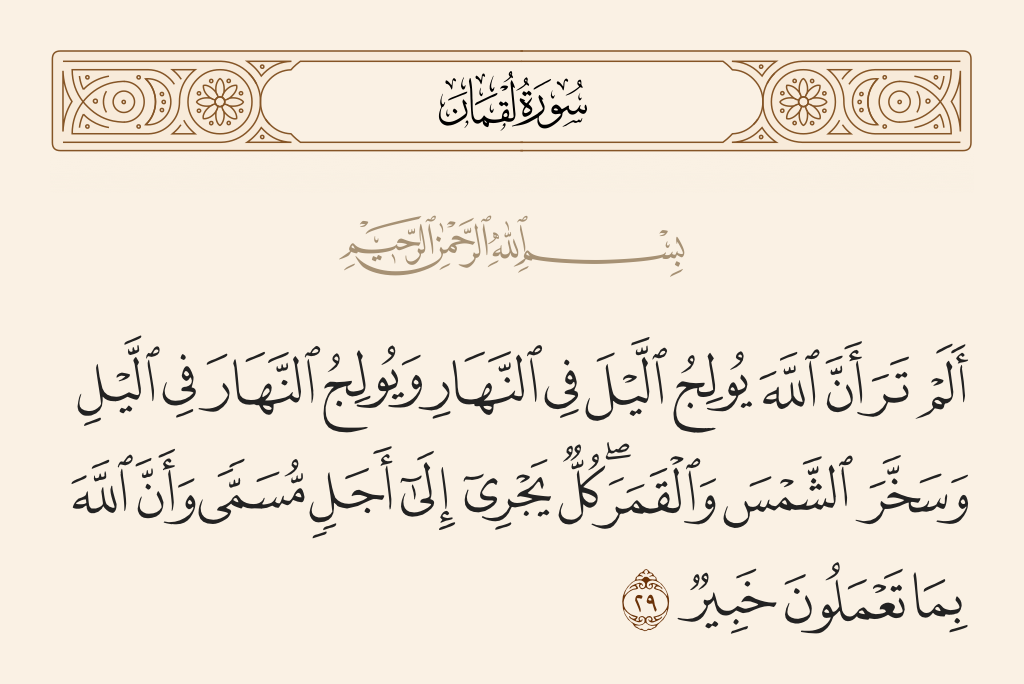 سُورَةُ لُقْمَان
بِسْمِ ٱللَّهِ ٱلرَّحْمَٰنِ ٱلرَّحِيمِ
أَلَمْ تَرَ أَنَّ ٱللَّهَ يُولِجُ ٱلَّيْلَ فِى ٱلنَّهَارِ وَيُولِجُ ٱلنَّهَارَ فِى ٱلَّيْلِ
وَسَخَّرَ ٱلشَّمْسَ وَٱلْقَمَرَ ۖ كُلٌّ يَجْرِىٓ إِلَىٰٓ أَجَلٍ مُّسَمًّى وَأَنَّ ٱللَّهَ
بِمَا تَعْمَلُونَ خَبِيرٌ ٢٩